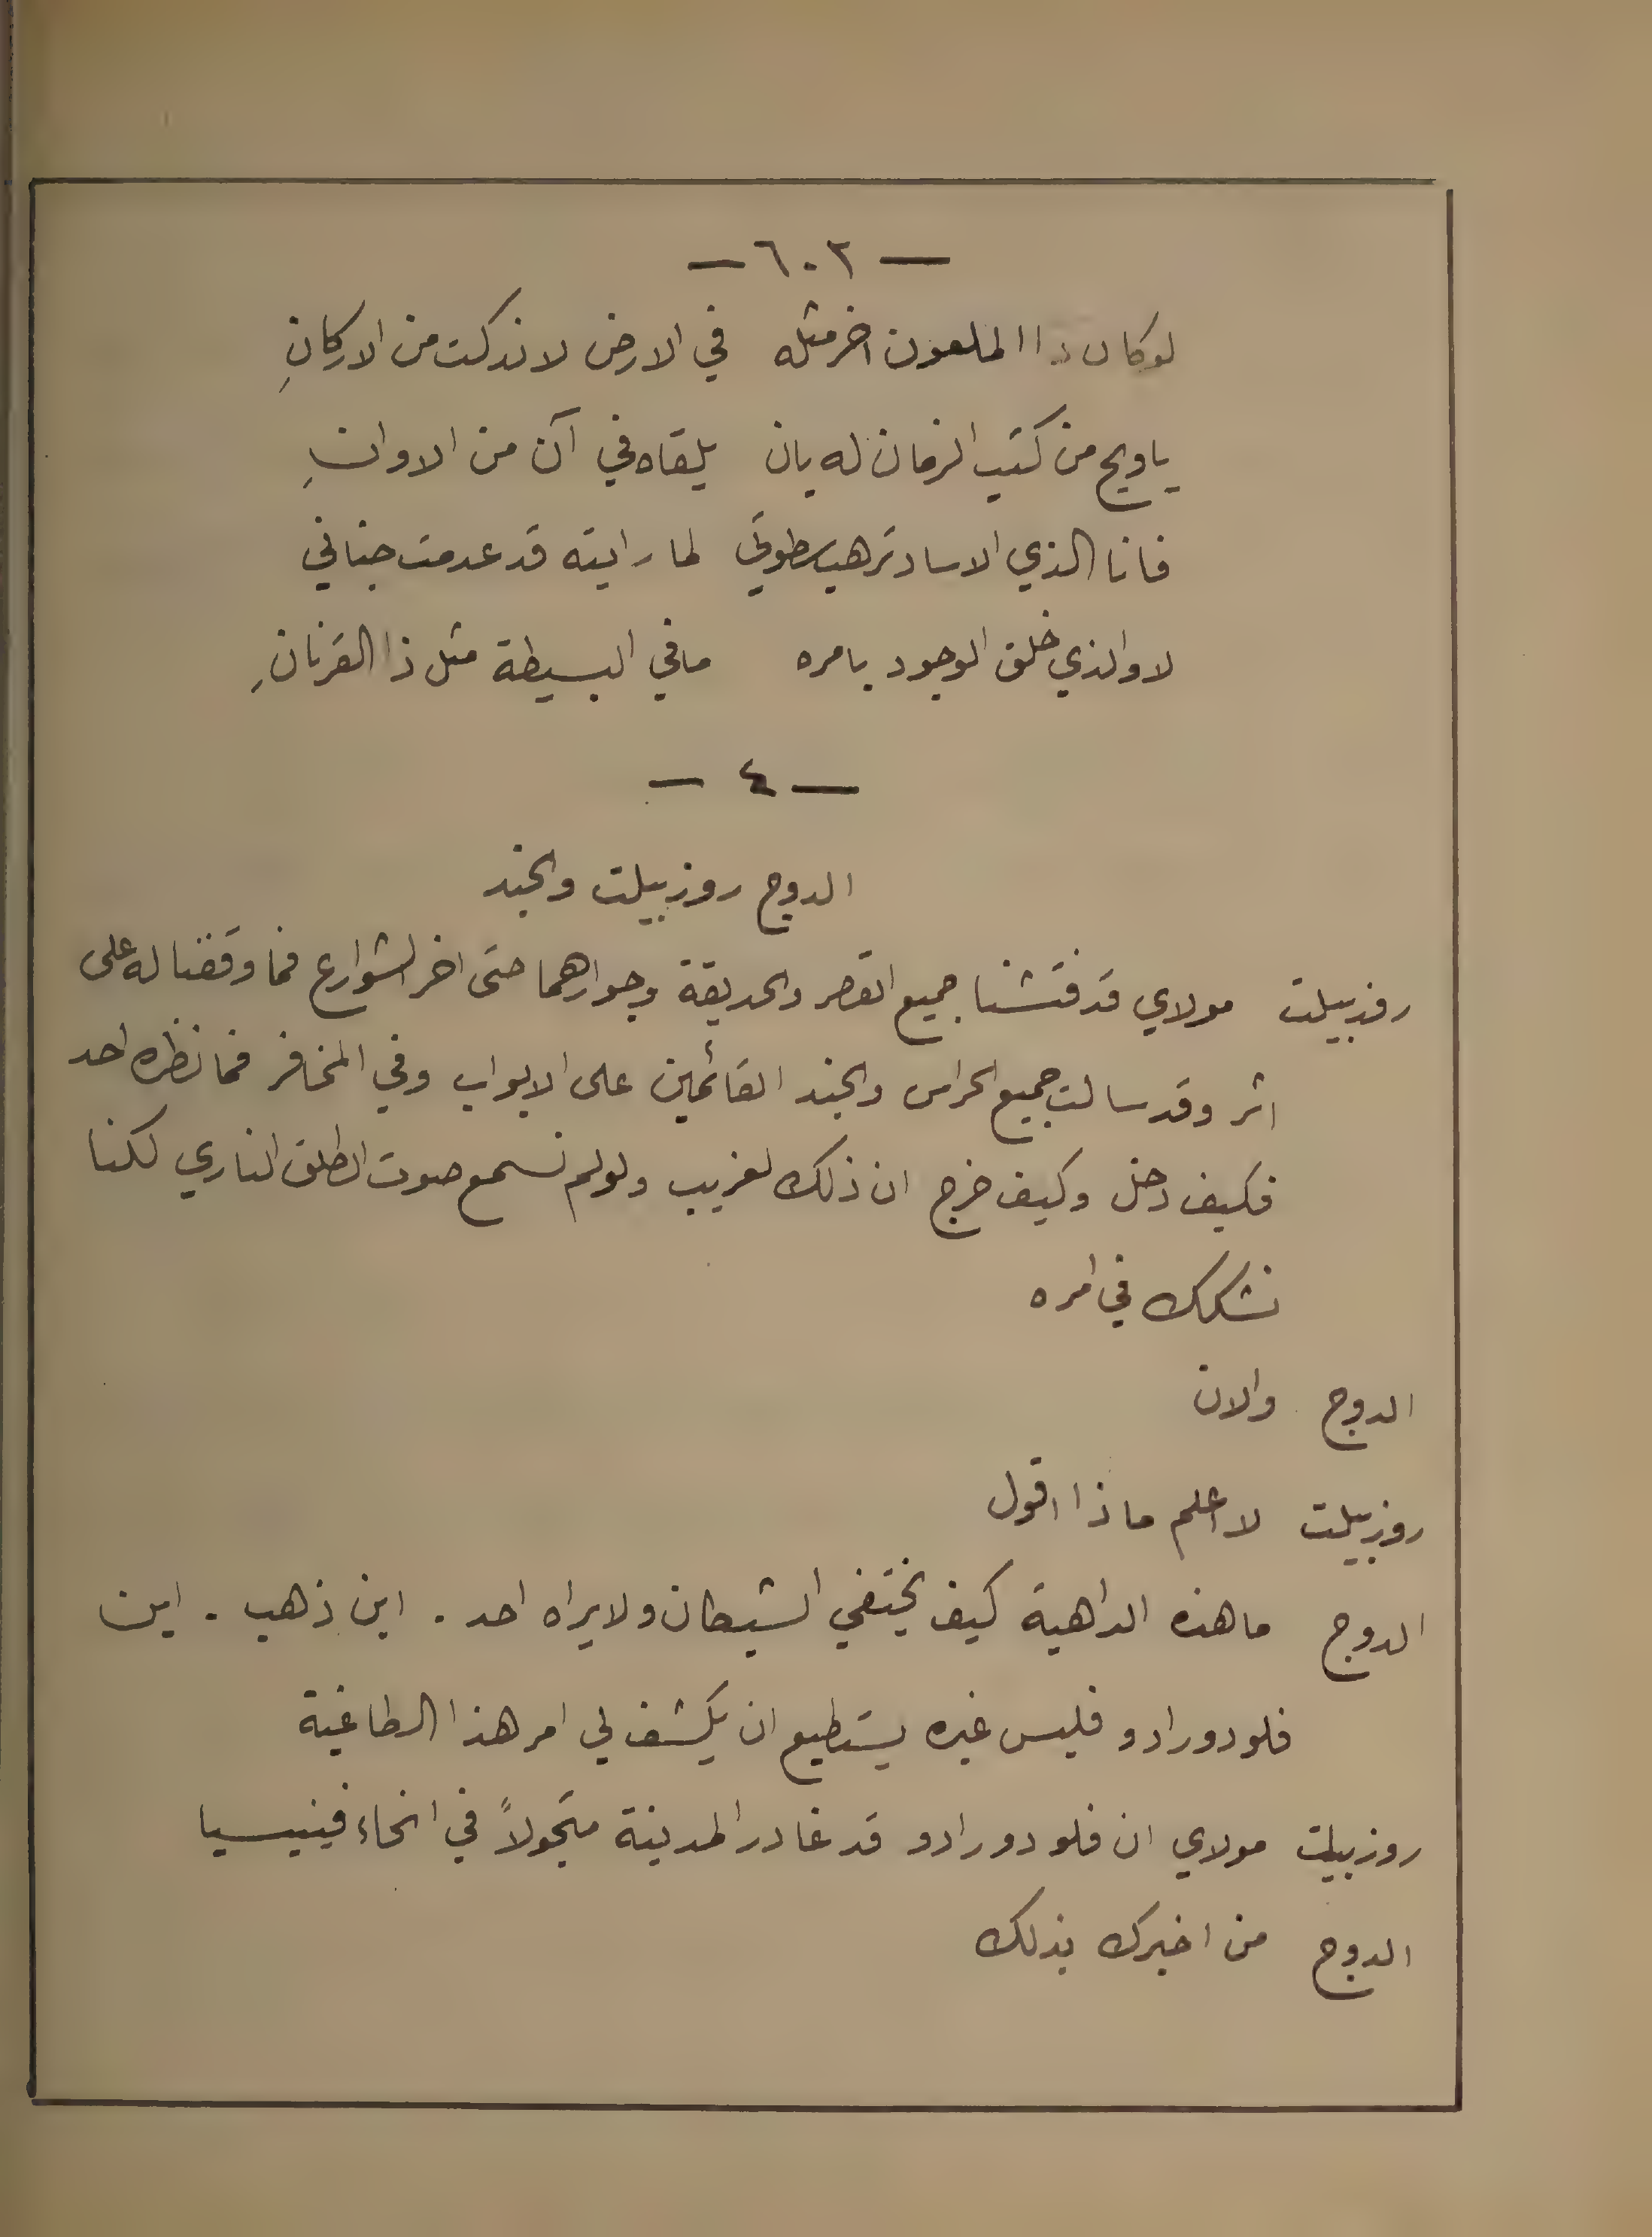 — ٦٠٢ —
لوكان ذا الملعون اخر مثله في الارض لاندكت من الاركانِ
ياويح من كتب الزمان له بان يلقاه في آن من الاوانِ
فانا الذي الاساد ترهب سطوتي لما رايته قد عدمت جناني
لا والذي خلق الوجود بامره مافي البسيطة مثل ذا القرنانِ
— ٤ —
الدوج روزبيلت والجند
روزبيلت مولاي قد فتشنا جميع القصر والحديقة وجوارهما حتى اخر الشوارع فما وقفنا له على
اثر وقد سالت جميع الحراس والجند القائمين على الابواب وفي المخافر فما نظره احد
فكيف دخل وكيف خرج ان ذلك لغريب ولولم نسمع صوت الطلق الناري لكنا
نشكك في امره
الدوج والان
روزبيلت لا اعلم ماذا اقول
الدوج ماهذه الداهية كيف يختفي الشيطان ولايراه احد . اين ذهب . اين
فلودورادو فليس غيره يستطيع ان يكشف لي امر هذا الطاغية
روزبيلت مولاي ان فلودورادو قد غادر المدينة متجولاً في انحاء فينيسيا
الدوج من اخبرك بذلك